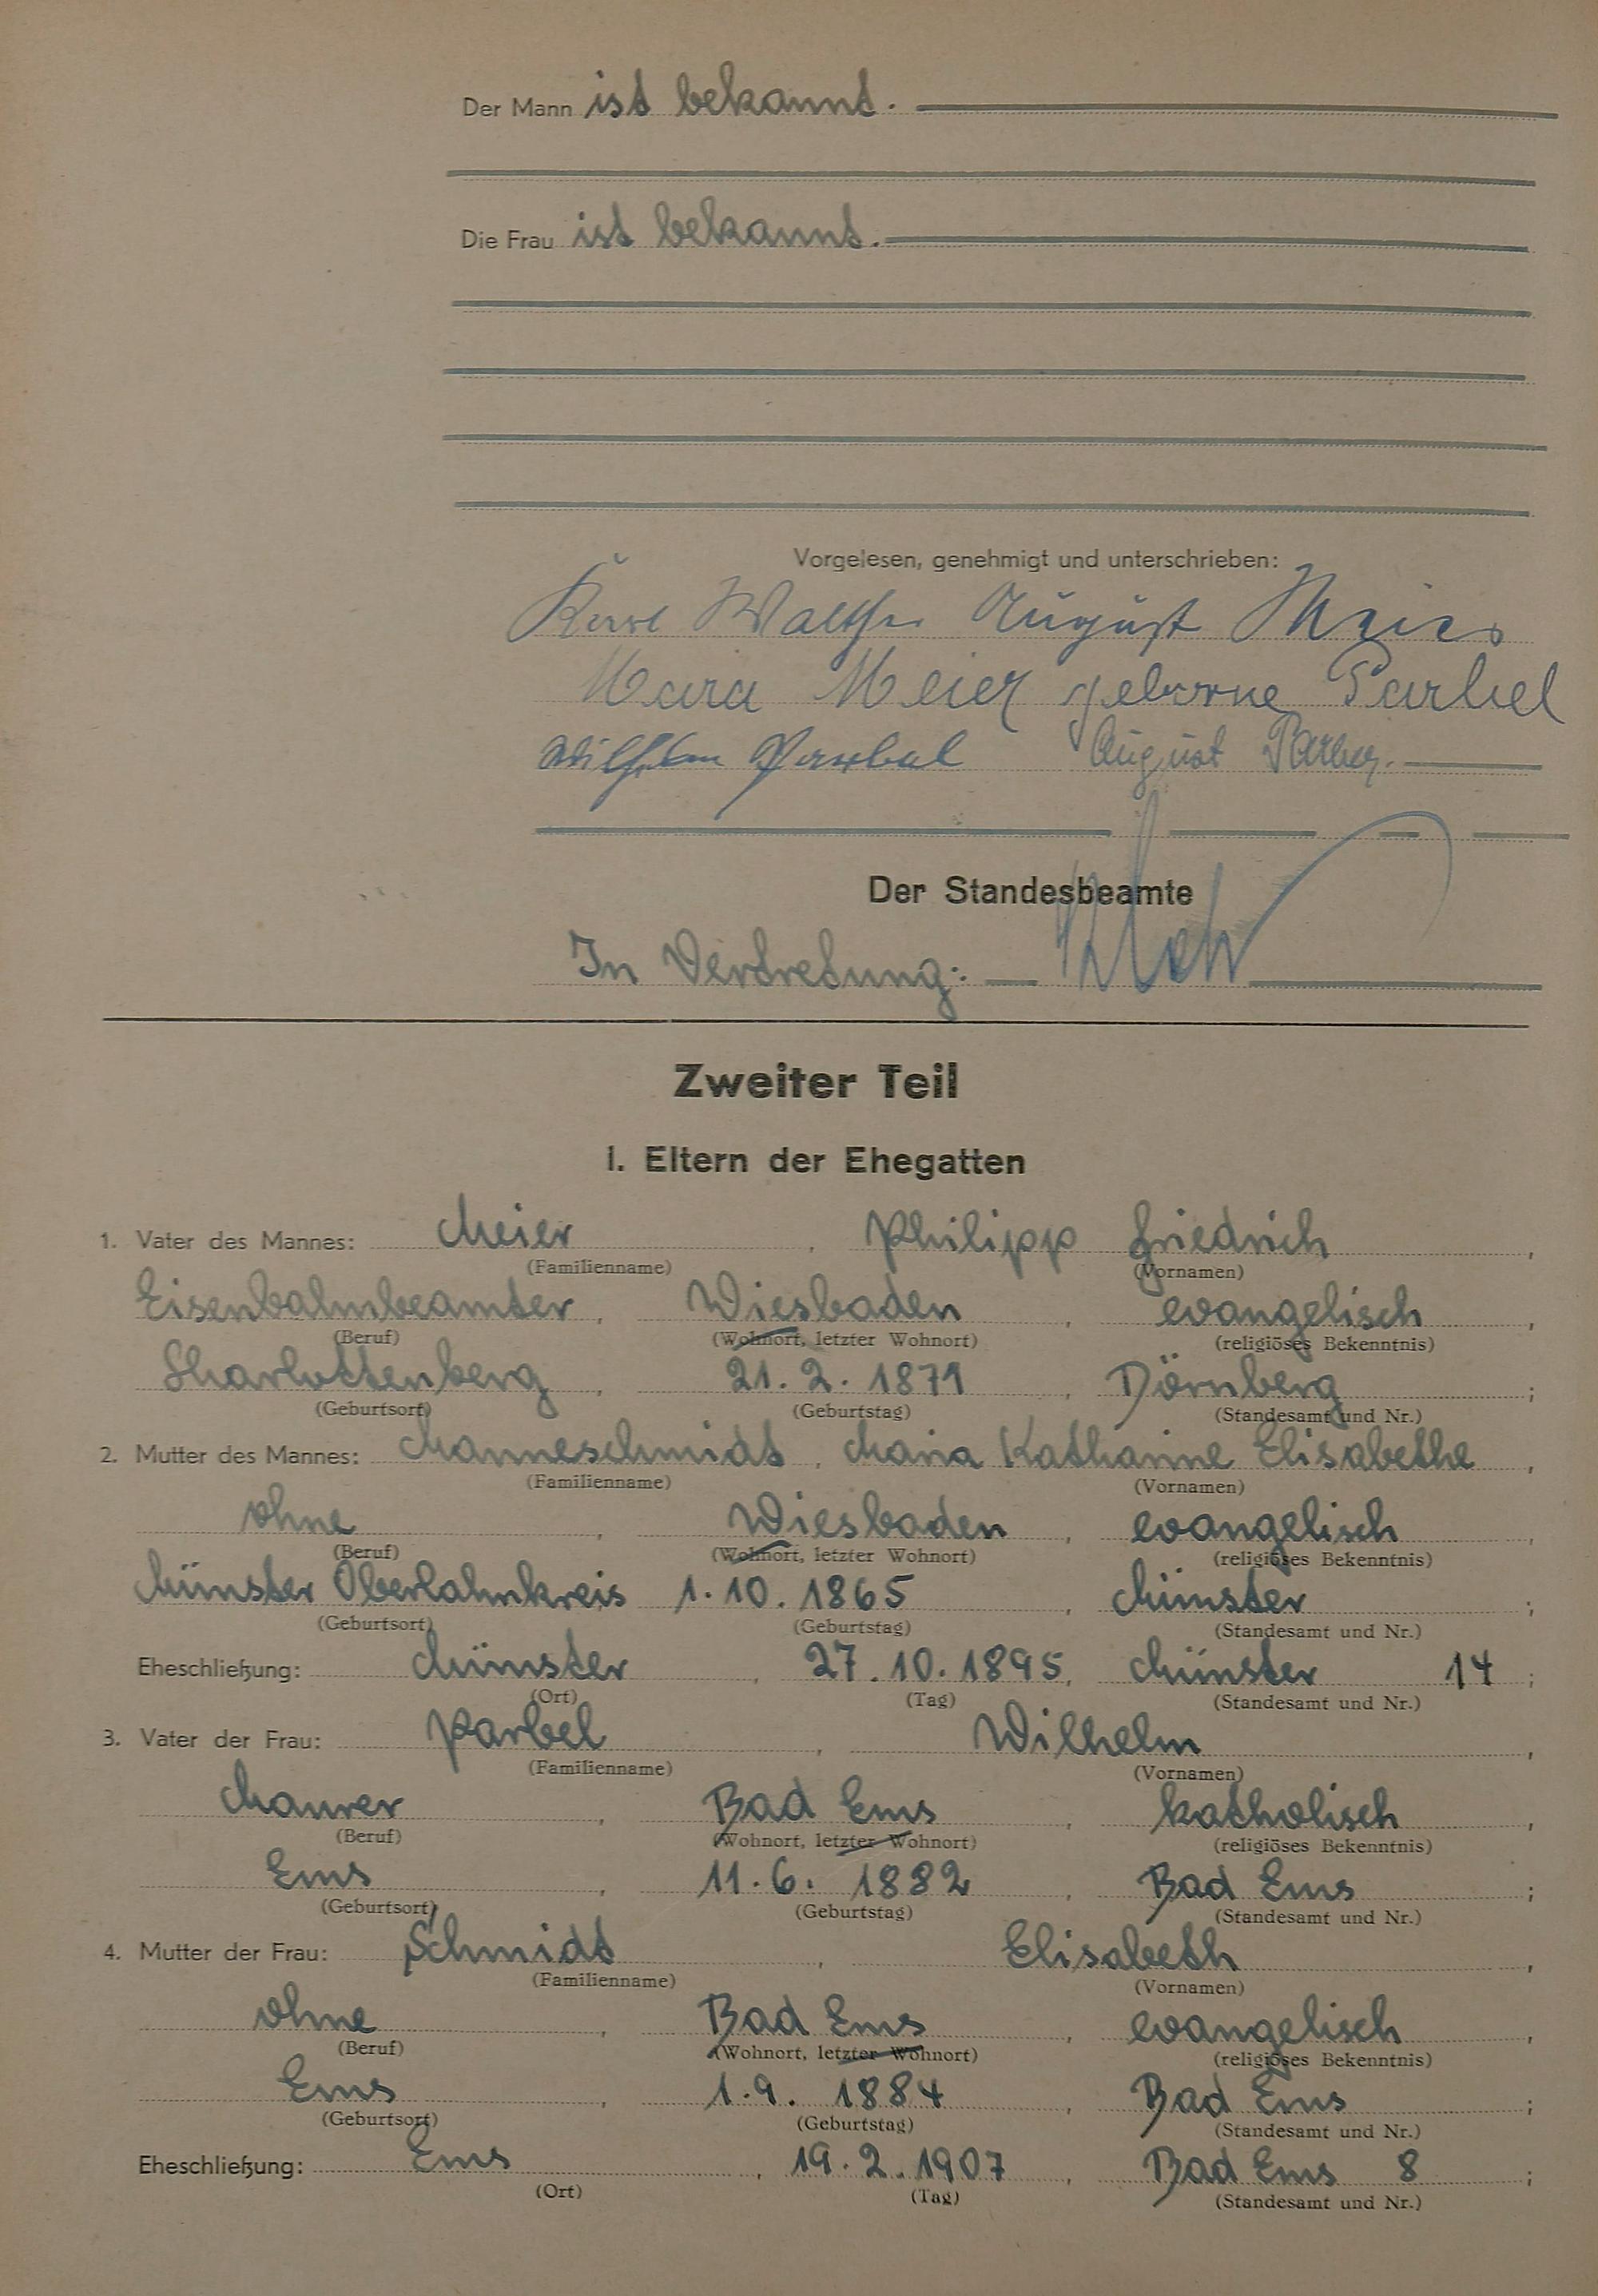 Der Mann ist bekannt.
Die Frau ist bekannt.
Vorgelesen, genehmigt und unterschrieben:
Karl Walther August Meier
Maria Meier geborne Parbel
Wilhelm Parbel August
Der Standesbeamte
In Vertretung:
Zweiter Teil
I. Eltern der Ehegatten
1. Vater des Mannes: Meier, Philipp Friedrich,
(Familienname) (Vornamen)
Eisenbahnbeamter, Wiesbaden, evangelisch,
(Beruf) (Wohnort, letzter Wohnort) (religiöses Bekenntnis)
Sharlottenberg, 21. 2. 1871, Dörnberg;
(Geburtsort) (Geburtstag) (Standesamt und Nr.)
2. Mutter des Mannes: Manneschmidt, Maria Katharine Elisabethe,
(Familienname) (Vornamen)
ohne, Wiesbaden, evangelisch,
(Beruf) (Wohnort, letzter Wohnort) (religiöses Bekenntnis)
Münster Oberlahnkreis 1. 10. 1865, Münster;
(Geburtsort) (Geburtstag) (Standesamt und Nr.)
Eheschließung: Münster, 27. 10. 1895, Münster 14;
(Ort) (Tag) (Standesamt und Nr.)
3. Vater der Frau: Parbel, Wilhelm,
(Familienname) (Vornamen)
Maurer, Bad Ems, katholisch,
(Beruf) (Wohnort, letzter Wohnort) (religiöses Bekenntnis)
Ems, 11. 6. 1882, Bad Ems;
(Geburtsort) (Geburtstag) (Standesamt und Nr.)
4. Mutter der Frau: Schmidt, Elisabeth,
(Familienname) (Vornamen)
ohne, Bad Ems, evangelisch,
(Beruf) (Wohnort, letzter Wohnort) (religiöses Bekenntnis)
Ems, 1. 9. 1884, Bad Ems;
(Geburtsort) (Geburtstag) (Standesamt und Nr.)
Eheschließung: Ems, 19. 2. 1907, Bad Ems 8;
(Ort) (Tag) (Standesamt und Nr.)